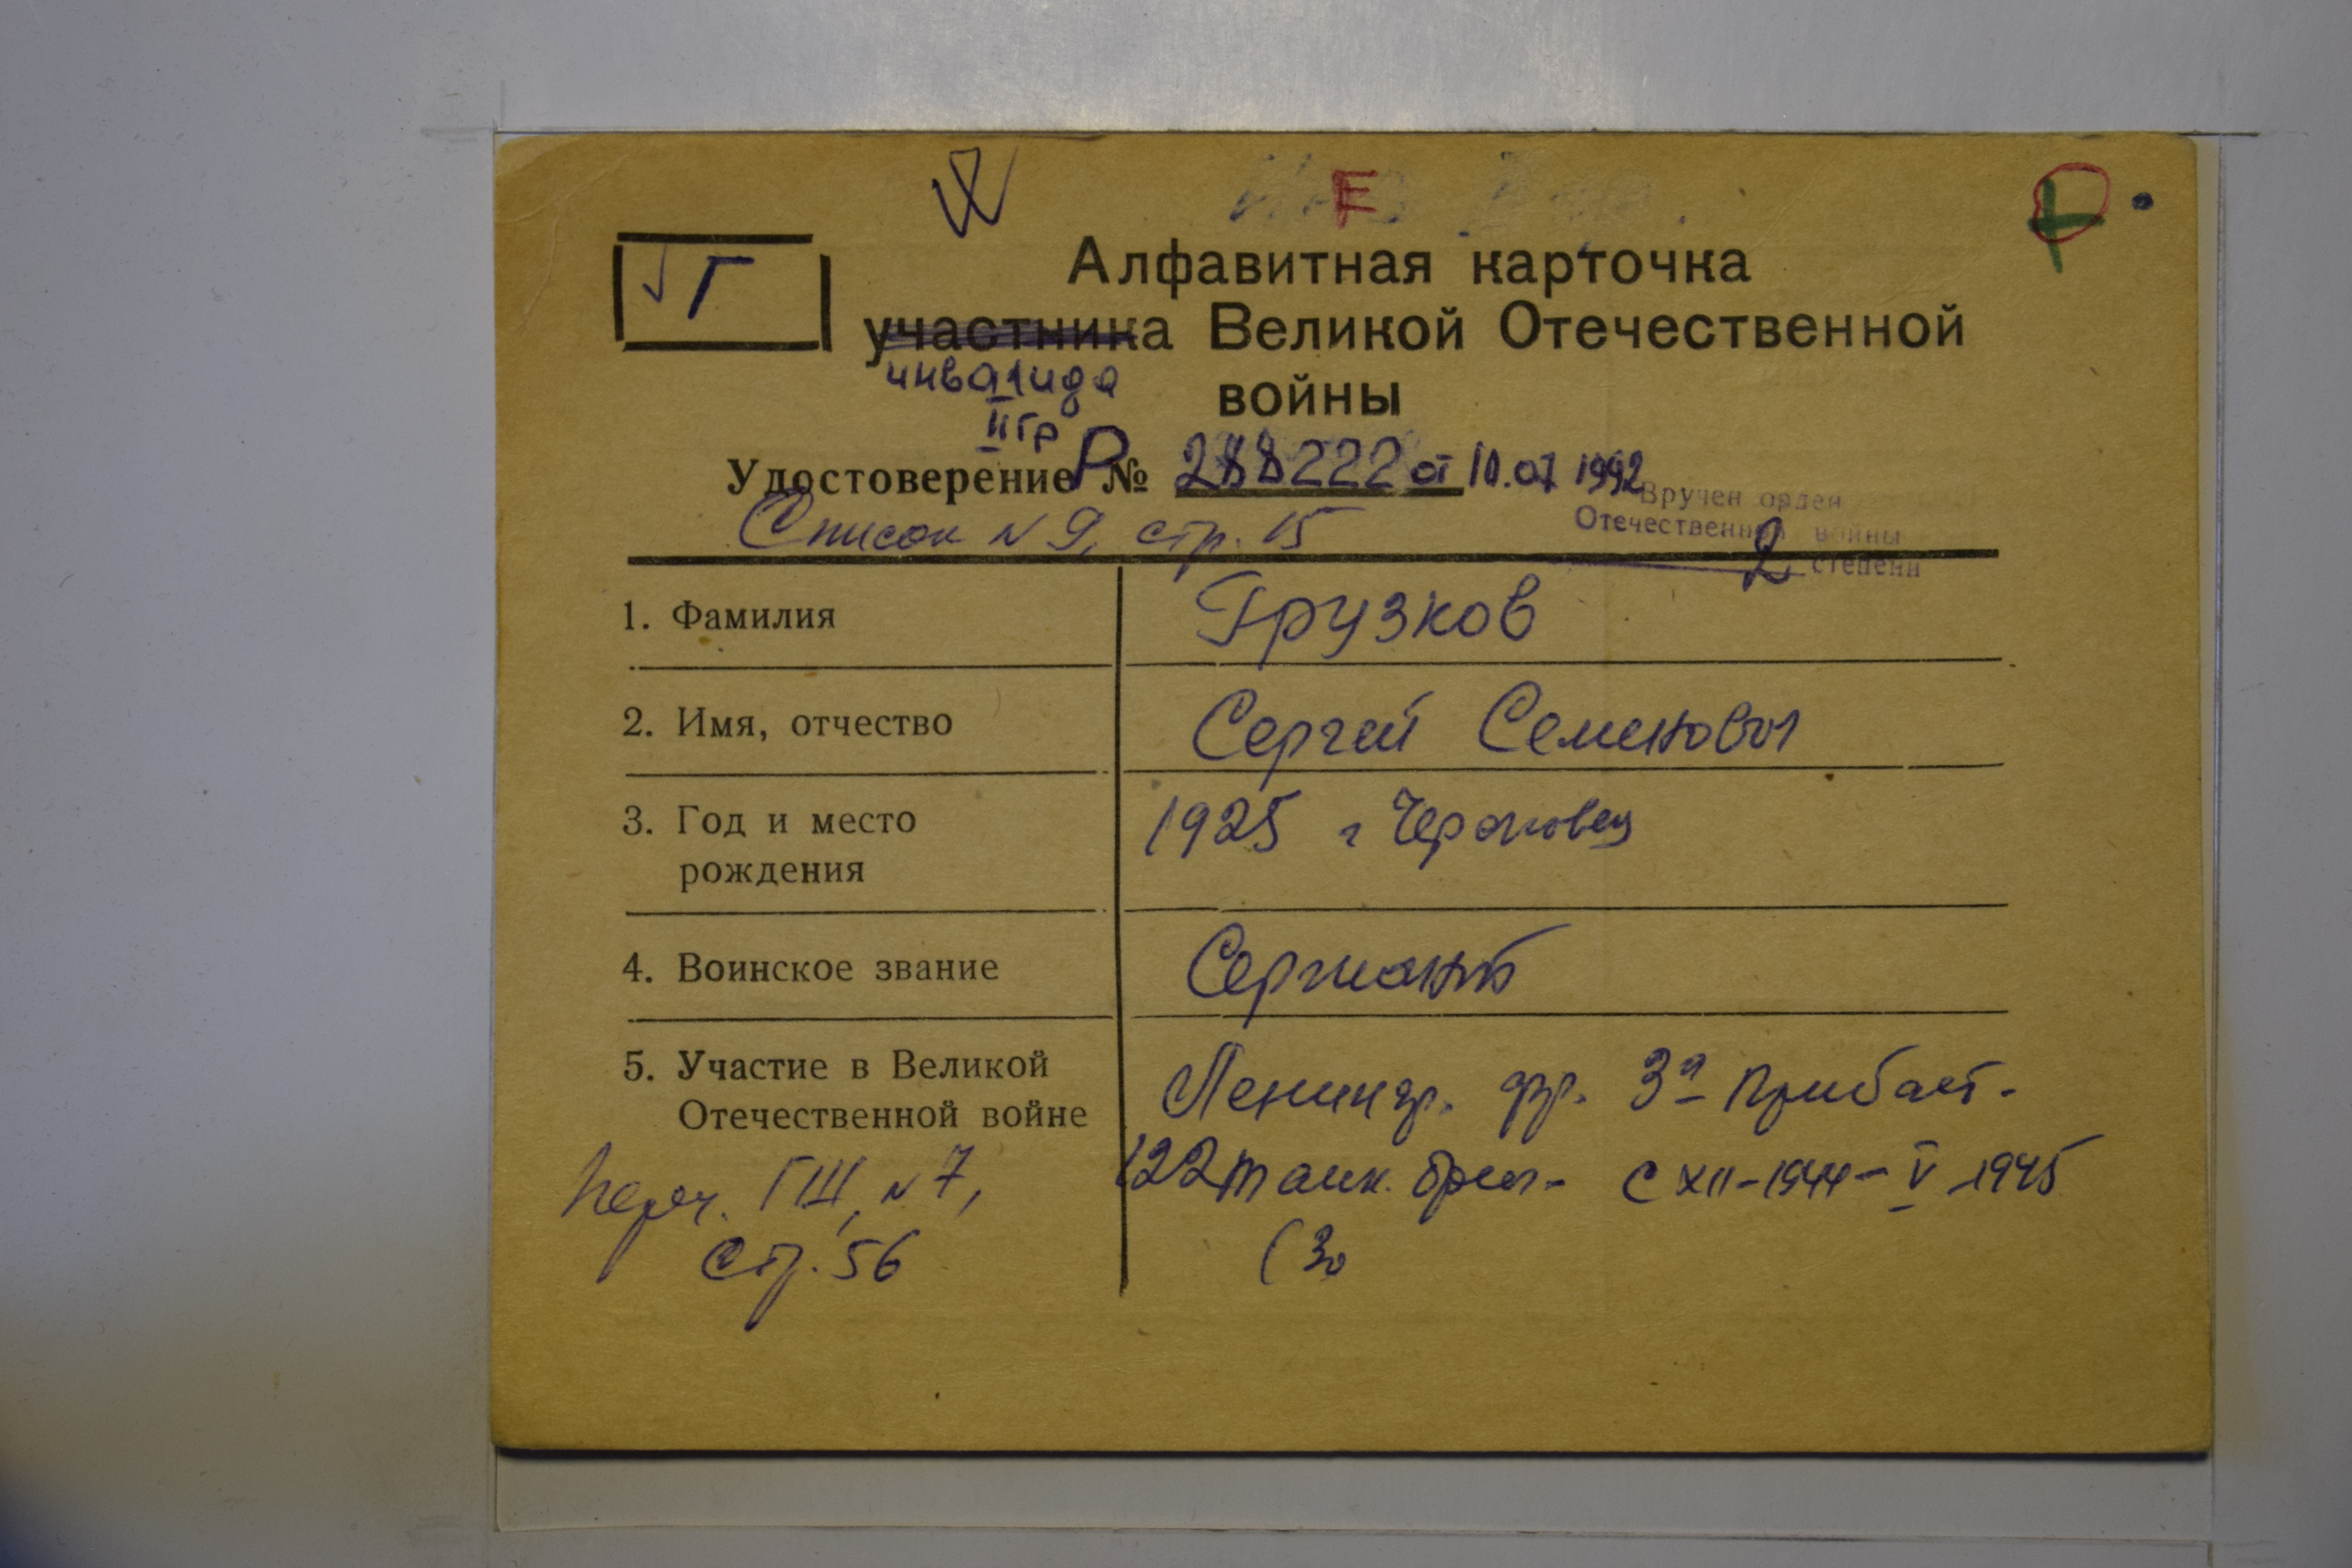 F
Г
Алфавитная карточка
участника Великой Отечественной
инвалида
войны
II гр
Удостоверение Р № 288222 от 10.07 1992
Вручен орден
Отечественной войны
2 степени
Список № 9, стр. 15
1. Фамилия Грузков
2. Имя, отчество Сергей Семенович
3. Год и место 1925 г Череповец
рождения
4. Воинское звание Сержант
5. Участие в Великой Ленингр. фр. 3й Прибалт.
Отечественной войне
122 танк. бриг. с XII-1944 - V 1945
Переч. ГШ, №7,
стр. 56